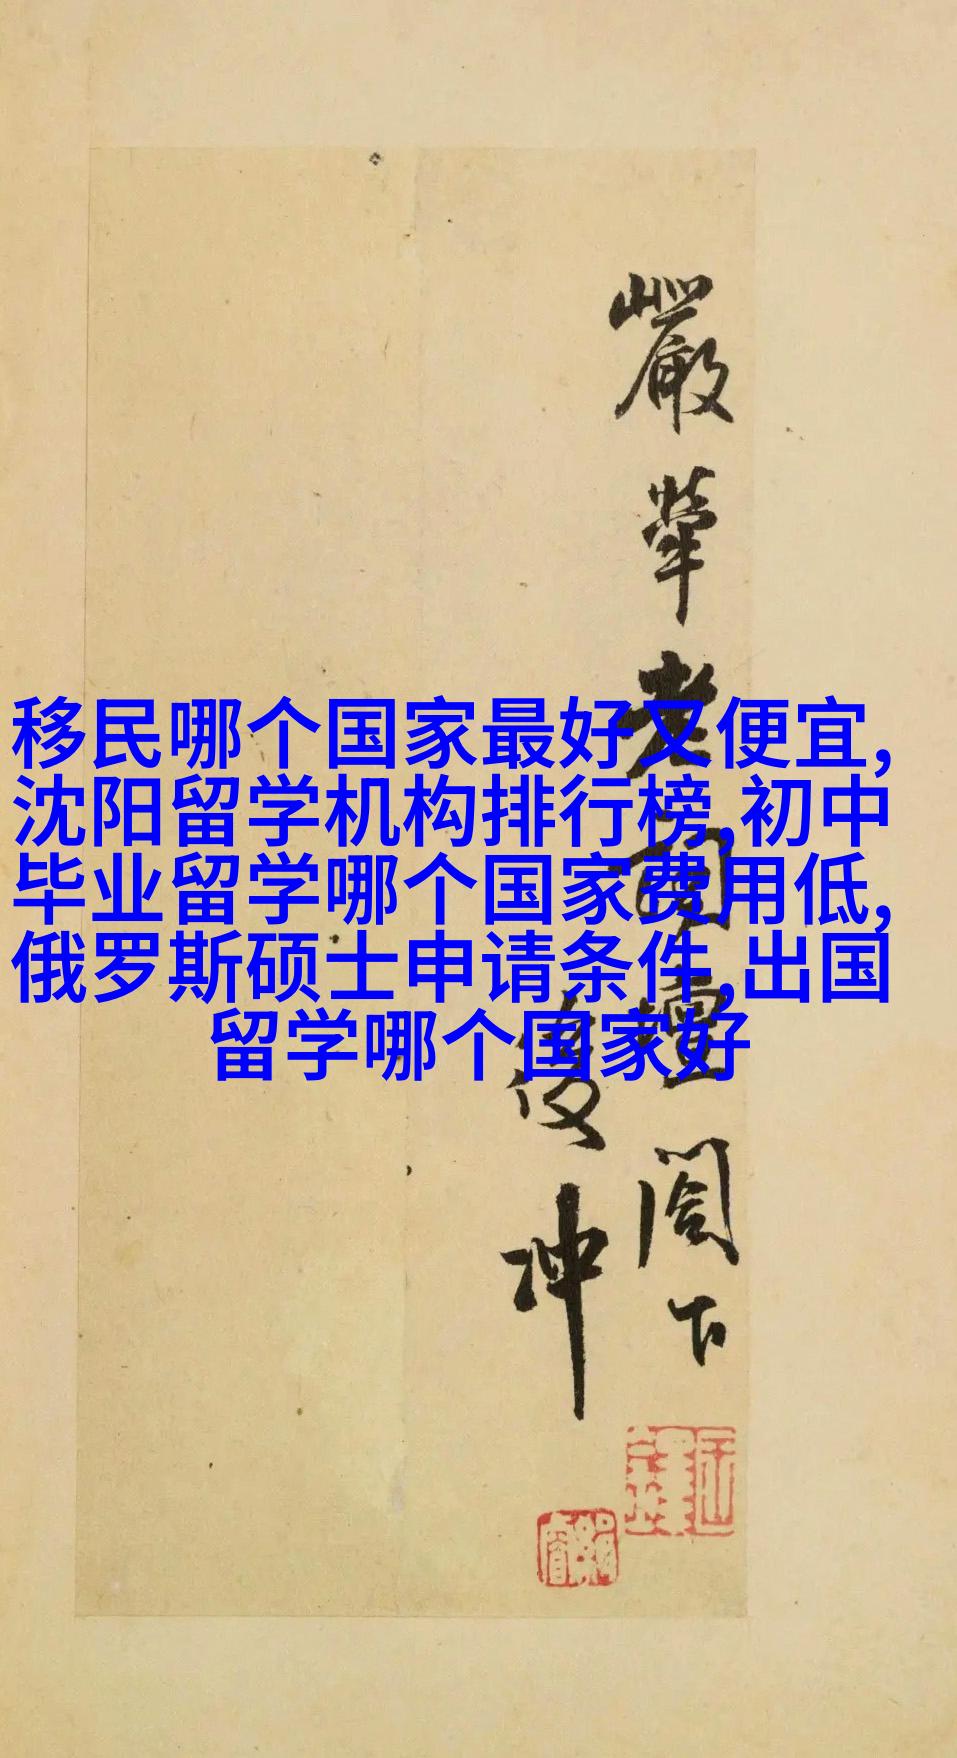 移民哪个国家最好又便宜,
沈阳留学机构排行榜,初中
毕业留学哪个国家费用低,
俄罗斯硕士申请条件,出国
留学哪个国家好
嚴犖老
閤下
冲